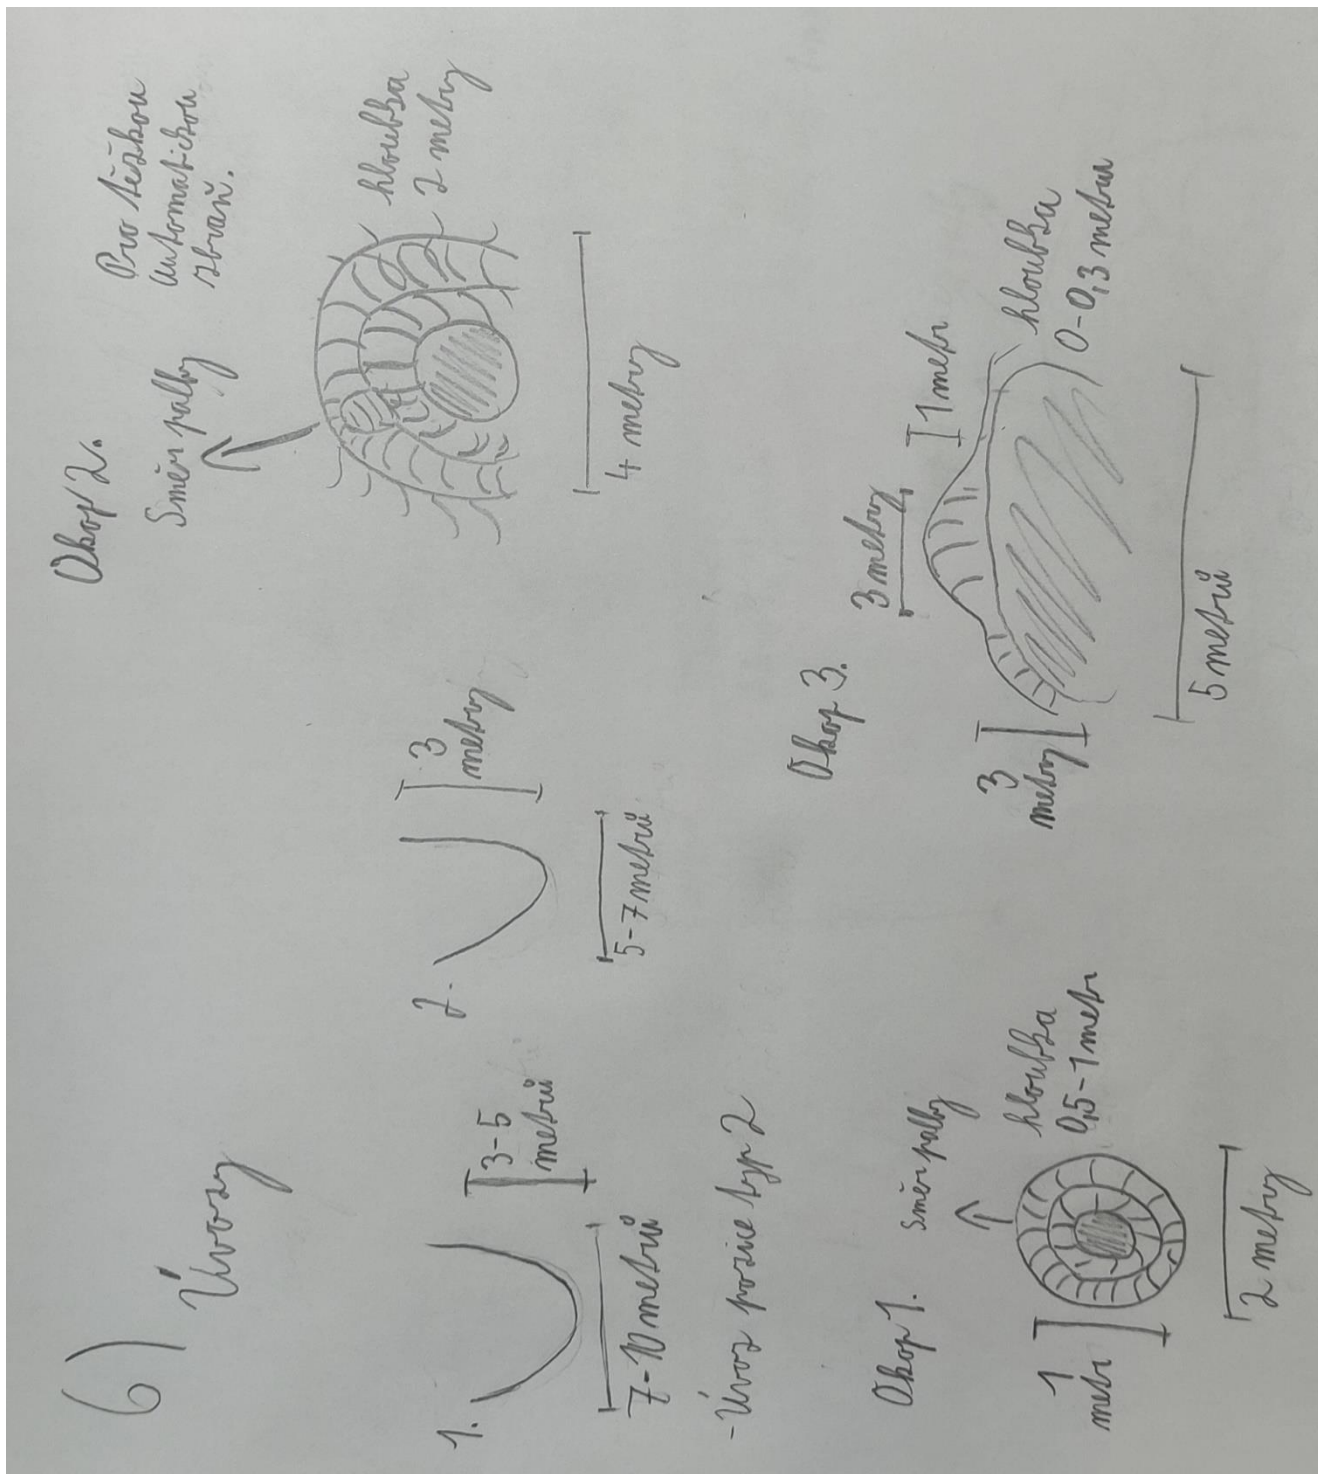 6)
Úvozy
1.
3-5
metrů
7-10 metrů
2.
3
metry
5-7 metrů
-Úvoz pozice typ 2
Okop 1.
Směr palby
1
metr
hloubka
0,5-1 metr
2 metry
Okop 2.
Směr palby
Pro těžkou
automatickou
zbraň.
hloubka
2 metry
4 metry
Okop 3.
3 metry
1 metr
3
metry
hloubka
0-0,3 metru
5 metrů